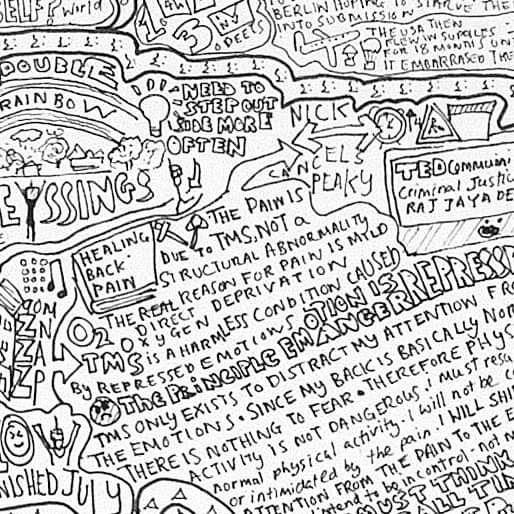 SELF? World
1.5
OPEELS
BERLIN HOPING TO STARVE THE
INTO SUBMISSION
THE USA THEN
FLEW IN SUPPLIES
FOR 18 MONTHS UNT
IT EMBARRASED THE
DOUBLE
RAINBOW
NEED TO
STEP OUT
SIDE MORE
OFTEN
NICK
CANCELS
PEAKY
EYSSINGS
TED Communi
Criminal Justic
RAJ JAYADE
HEALING
BACK
PAIN
THE PAIN IS
DUE TO TMS, NOT a
STRUCTURAL ABNORMALITY
THE REAL REASON FOR PAIN IS MILD
DIRECT
OXYGEN DEPRIVATION
O2
TMS IS A HARMLESS CONDITION CAUSED
BY REPRESSED EMOTIONS
The PRINCIPLE EMOTION IS
ANGER REPRESS
TMS ONLY EXISTS TO DISTRACT MY ATTENTION FR
THE EMOTIONS. SINCE MY BACK IS BASICALLY NOR
THERE IS NOTHING TO FEAR. THEREFORE PHYS
ACTIVITY IS NOT DANGEROUS. i must resu
normal physical activity. I will not be c
or intimidated by the pain. I WILL SHI
ATTENTION FROM THE PAIN TO THE E
intend to be in control - not
MUST THINK
ALL TI
NISHED JULY